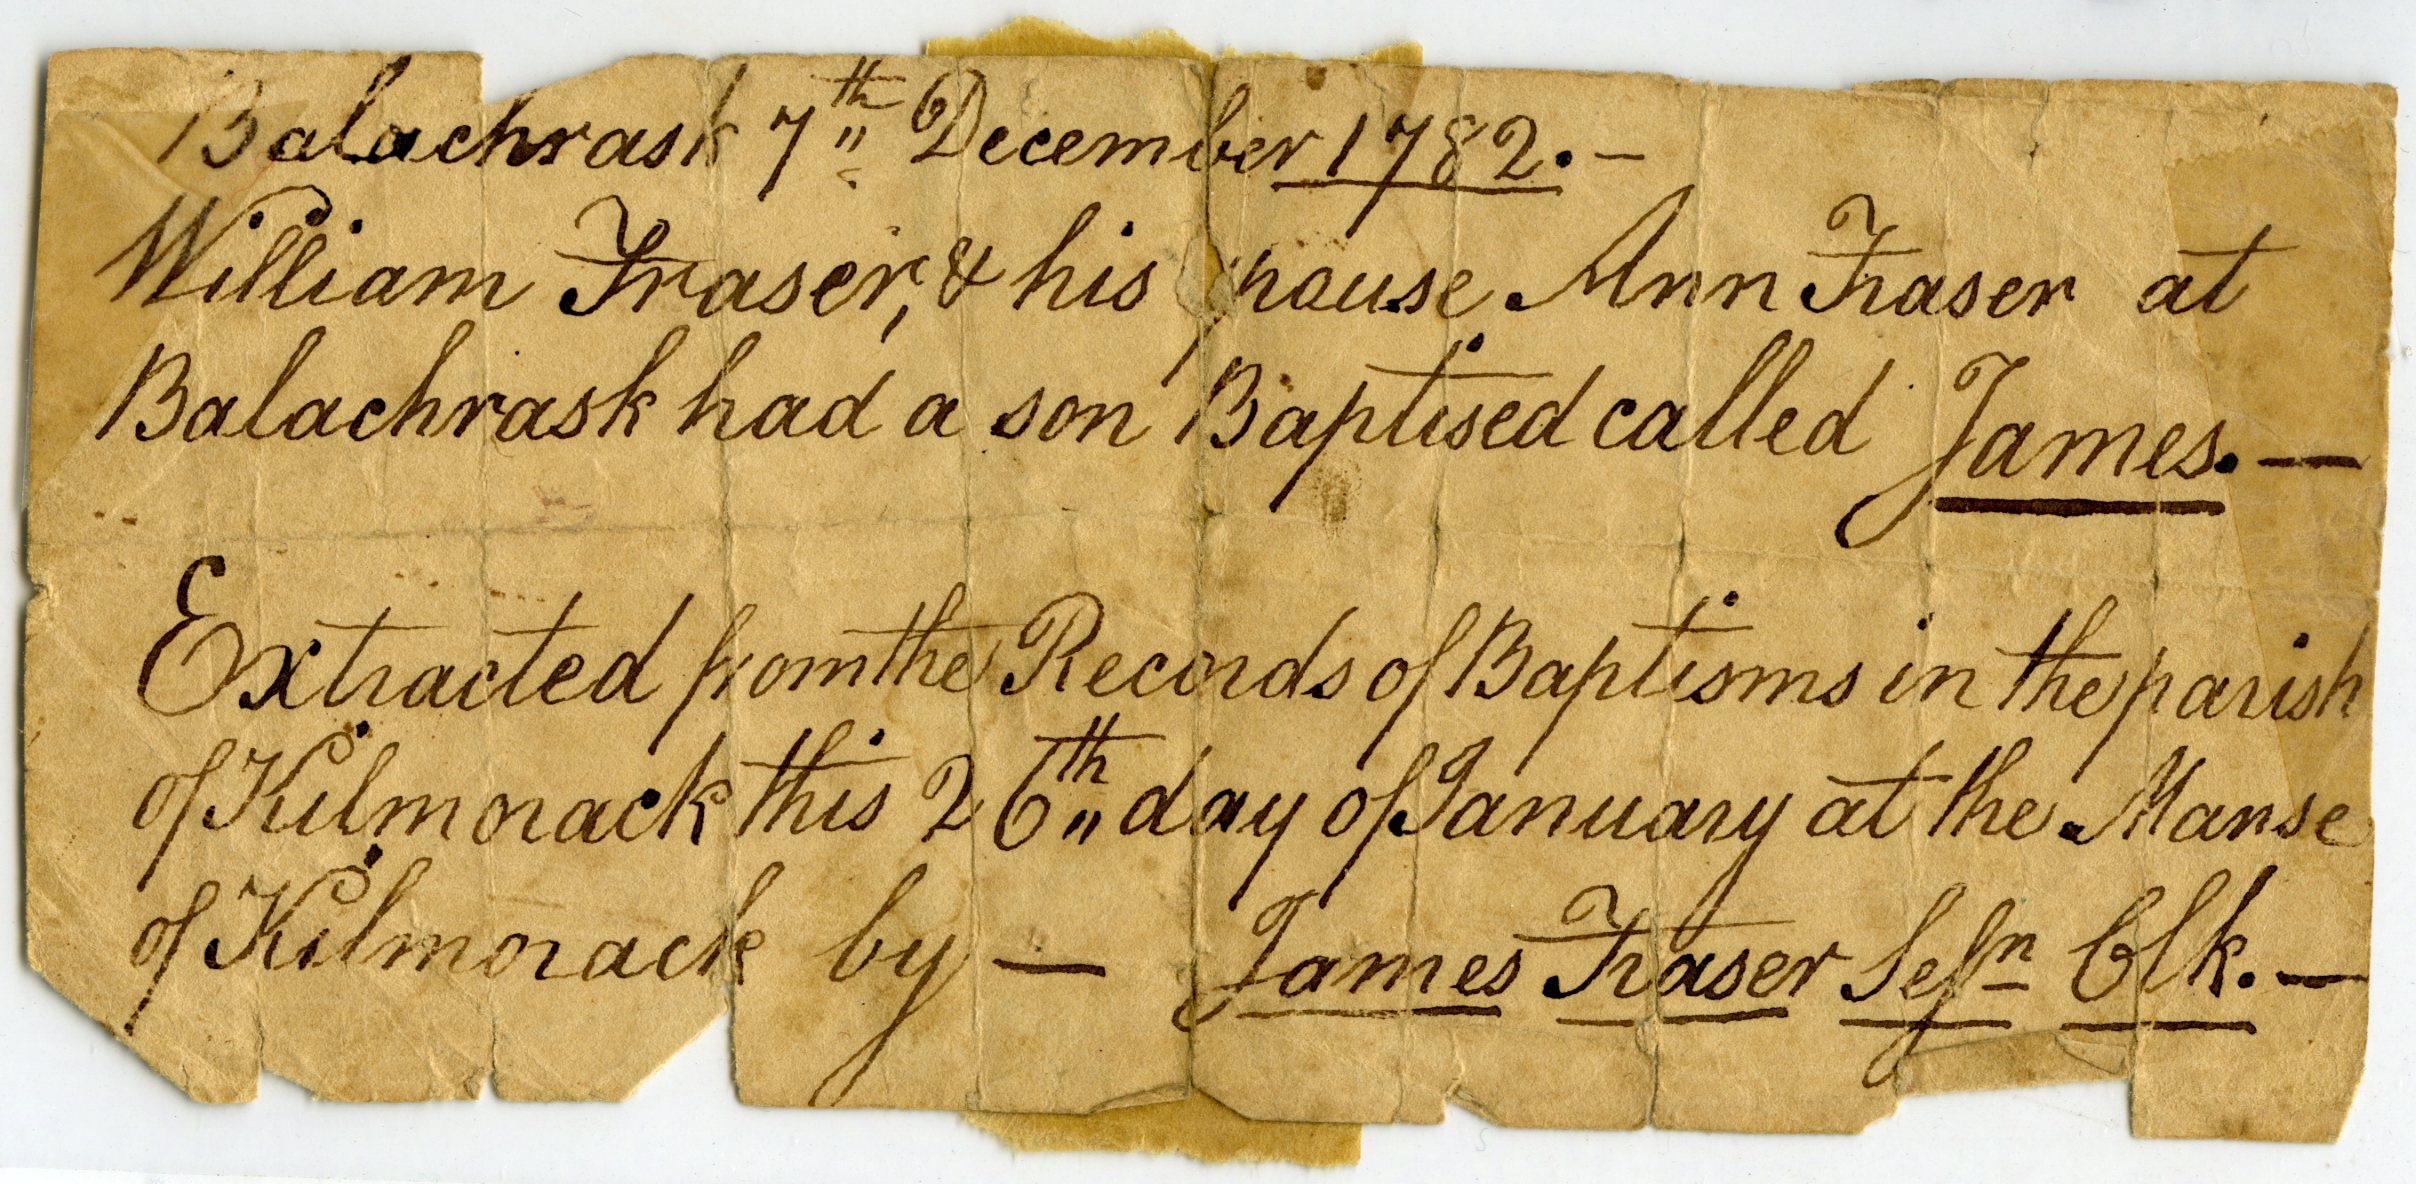 Balachrask 7th December 1782. —
William Fraser, & his spouse Ann Fraser at
Balachrask had a son Baptised called James. —
Extracted from the Records of Baptisms in the parish
of Kilmorack this 26th day of January at the Manse
of Kilmorack by — James Fraser Sessn Clk. —